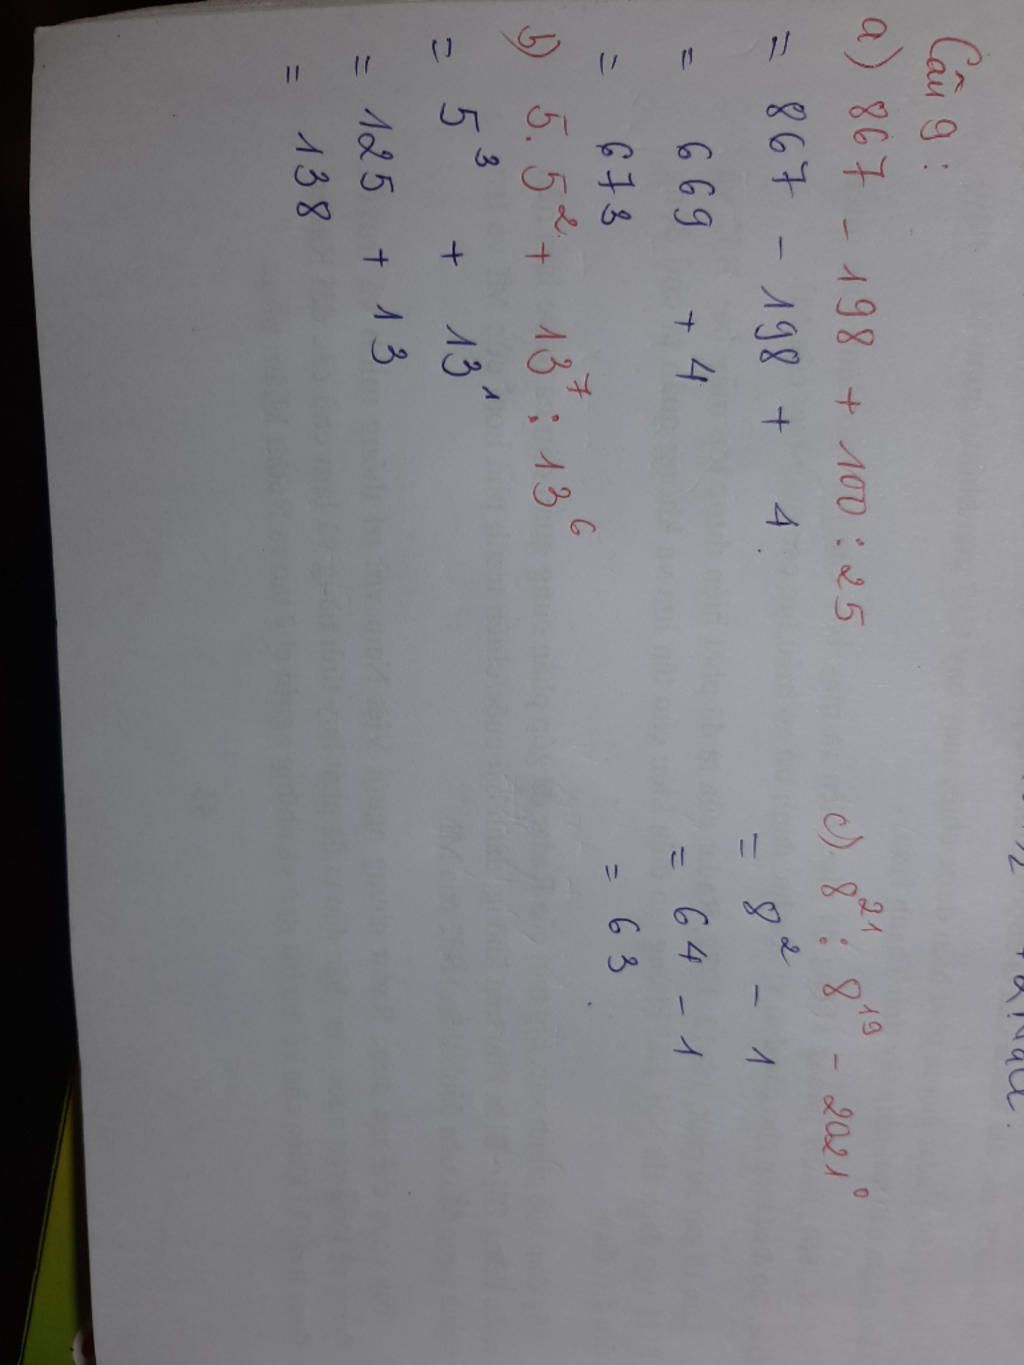 Câu 9:
a) 867 - 198 + 100 : 25
= 867 - 198 + 4
= 669 + 4
= 673
b) 5. 5² + 13⁷ : 13⁶
= 5³ + 13¹
= 125 + 13
= 138
c) 8²¹ : 8¹⁹ - 2021⁰
= 8² - 1
= 64 - 1
= 63